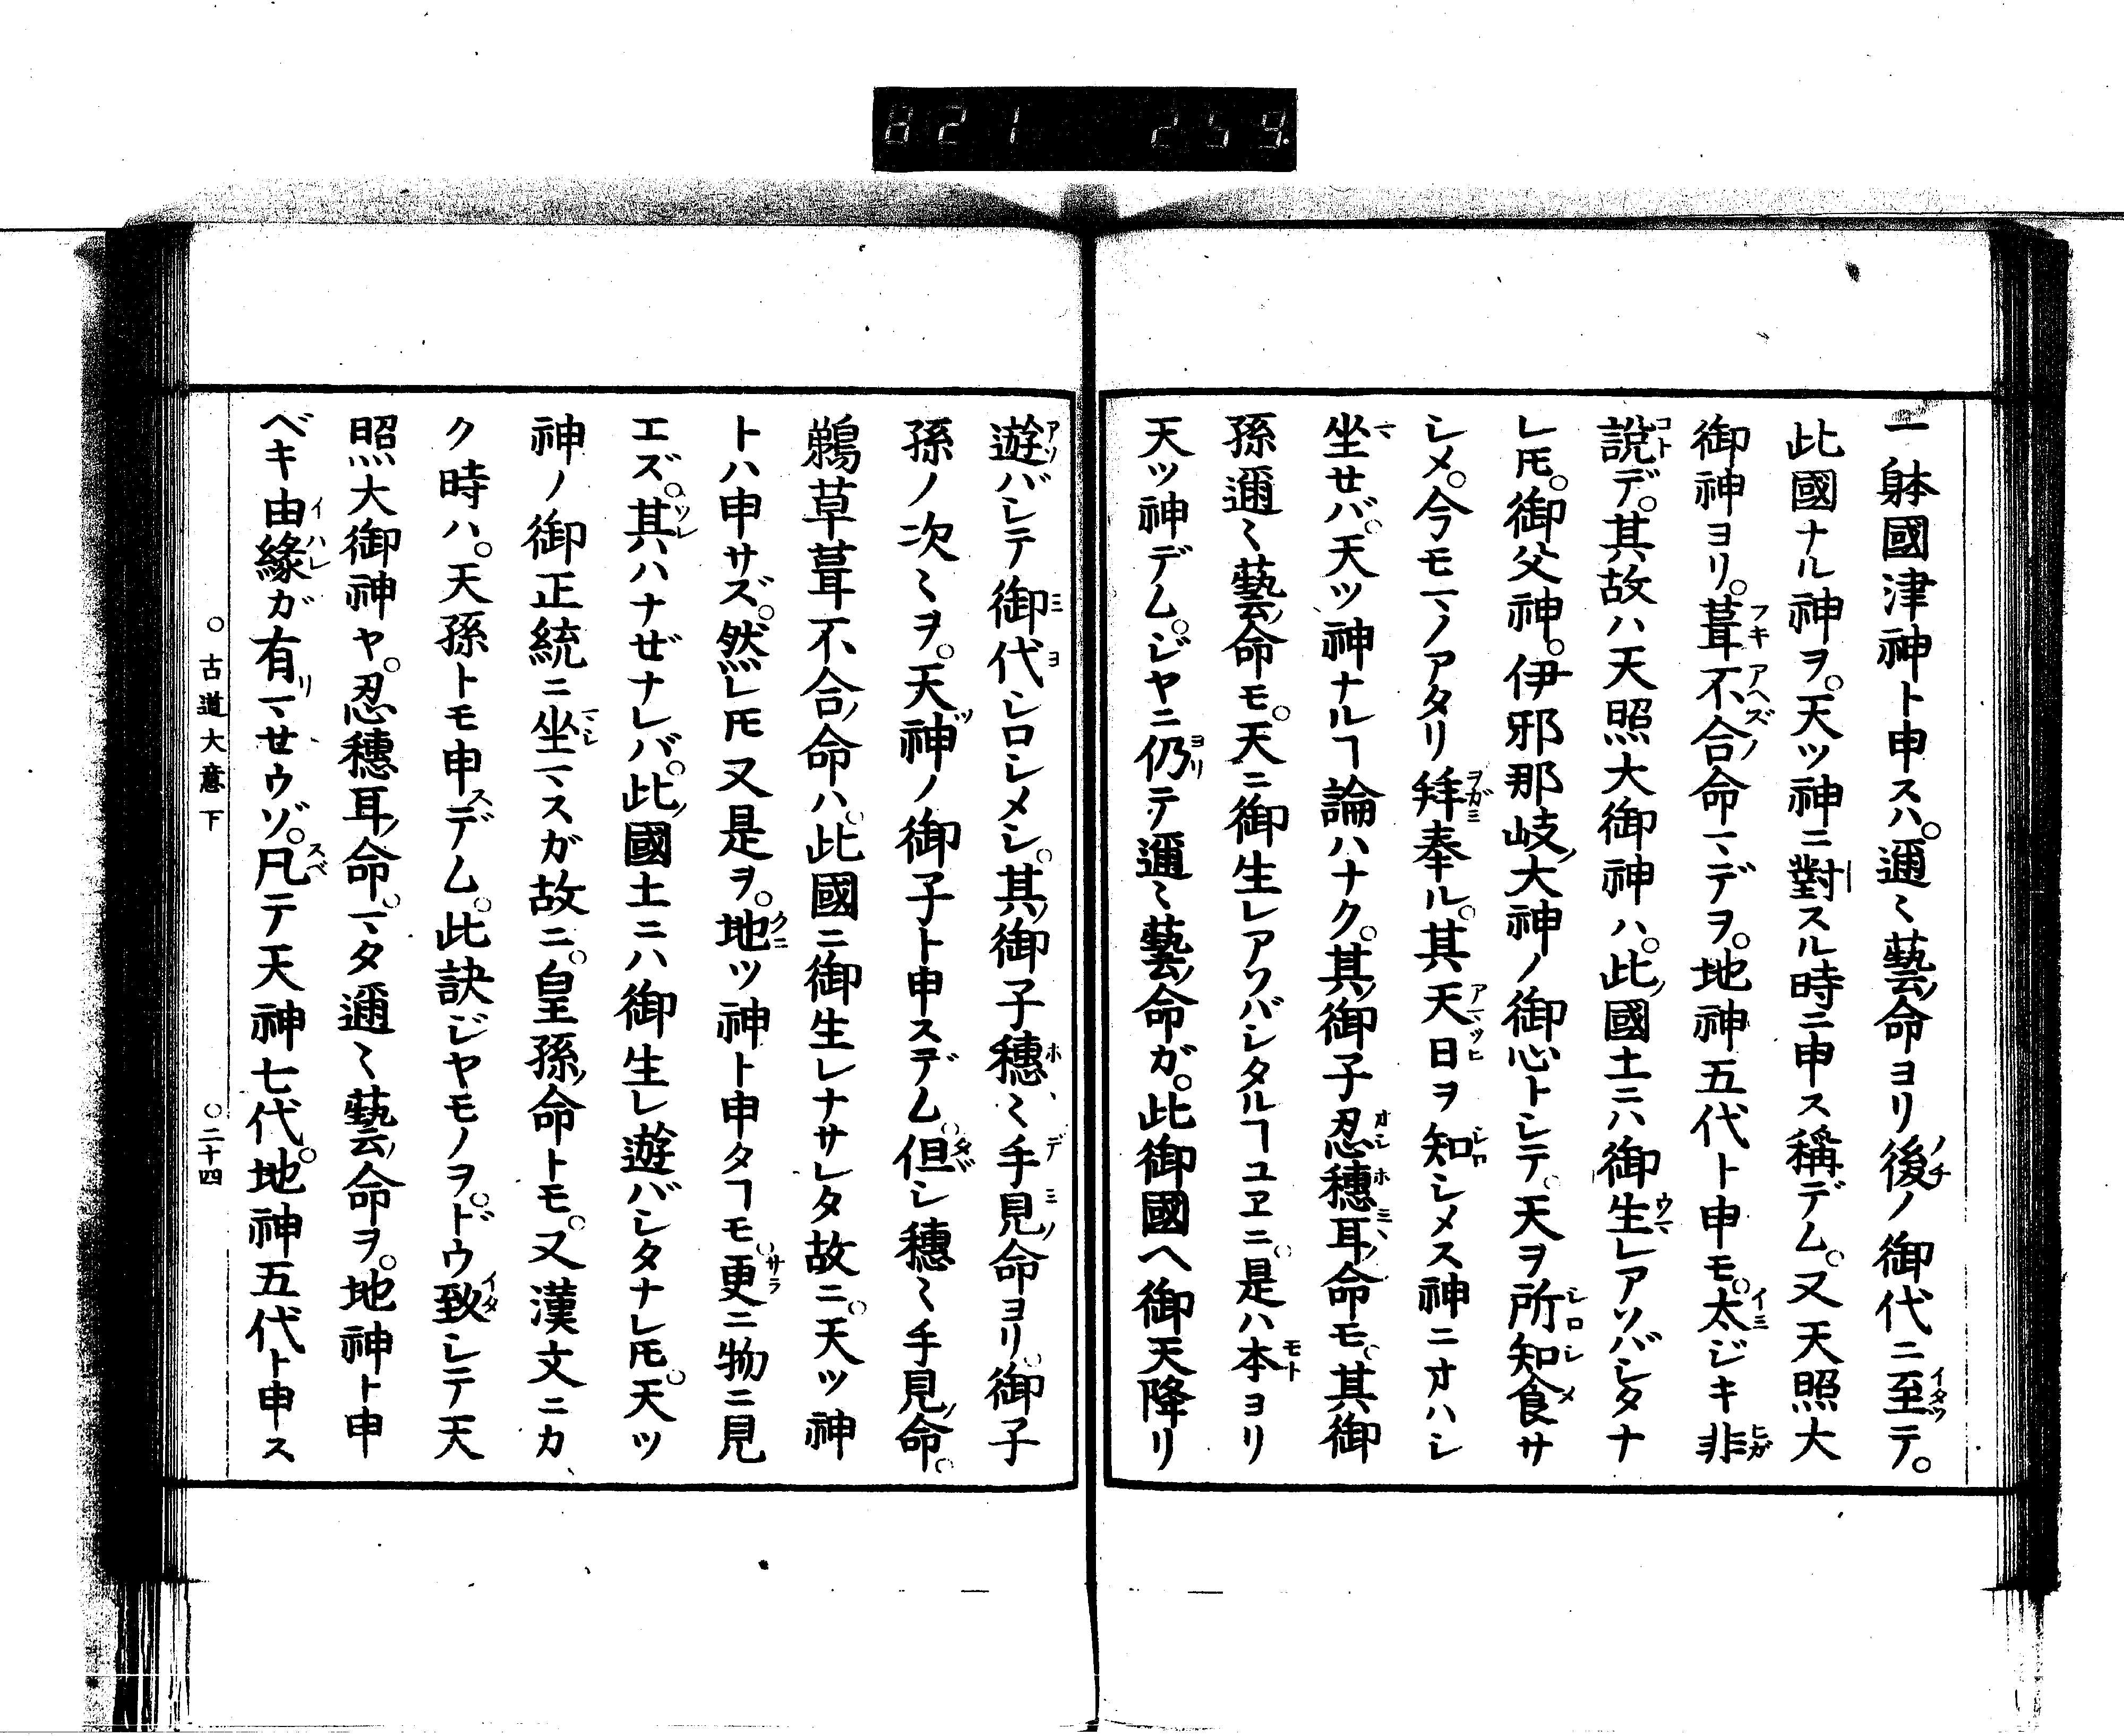 821 259.
一躰國津神ト申スハ。邇〻藝ノ命ヨリ後ノ御代ニ至テ。
此國ナル神ヲ。天ツ神ニ對スル時ニ申ス稱デム。又天照大
御神ヨリ。葺不合ノ命マデヲ。地神五代ト申モ。太ジキ非
說デ。其故ハ天照大御神ハ。此ノ國土ニハ御生レアソバシタナ
レ𪜈。御父神。伊邪那岐ノ大神ノ御心トシテ。天ヲ所知食サ
シメ。今モマノアタリ拜奉ル。其天日ヲ知シメス神ニオハシ
坐セバ。天ツ神ナルヿ論ハナク。其ノ御子忍穗耳ノ命モ。其御
孫邇〻藝ノ命モ。天ニ御生レアソバシタルヿユヱニ。是ハ本ヨリ
天ツ神デム。ジヤニ仍テ邇〻藝ノ命ガ。此御國ヘ御天降リ
遊バシテ御代シロシメシ。其ノ御子穗〻手見ノ命ヨリ。御子
孫ノ次〻ヲ。天ツ神ノ御子ト申スデム。但シ穗〻手見ノ命。
鵜草葺不合ノ命ハ。此國ニ御生レナサレタ故ニ。天ツ神
トハ申サズ。然レ𪜈又是ヲ。地ツ神ト申タヿモ。更ニ物ニ見
エズ。其ハナゼナレバ。此ノ國土ニハ御生レ遊バシタナレ𪜈。天ツ
神ノ御正統ニ坐マスガ故ニ。皇孫ノ命トモ。又漢文ニカ
ク時ハ。天孫トモ申スデム。此訣ジヤモノヲ。ドウ致シテ天
照大御神ヤ。忍穗耳ノ命。マタ邇〻藝ノ命ヲ。地神ト申
ベキ由緣ガ有リマセウゾ。凡テ天神七代。地神五代ト申ス
○古道大意下 ○二十四